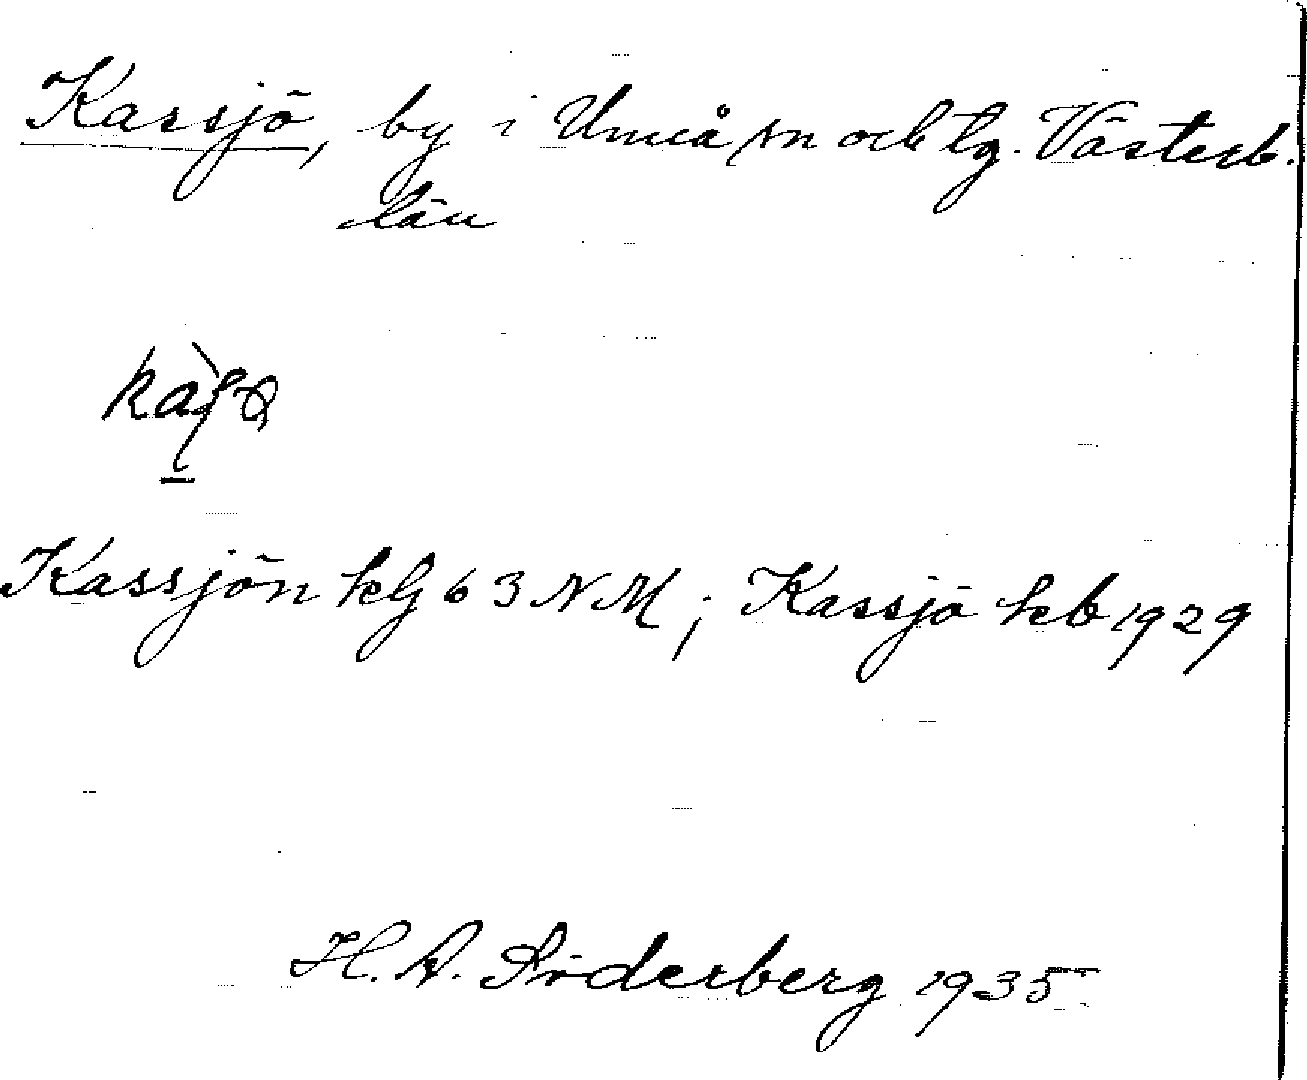 Kassjö, by i Umeå sn och tg. Västerb.
län
Kassjön klj 63 NM; Kassjö kb 1929
H. A. Söderberg 1935